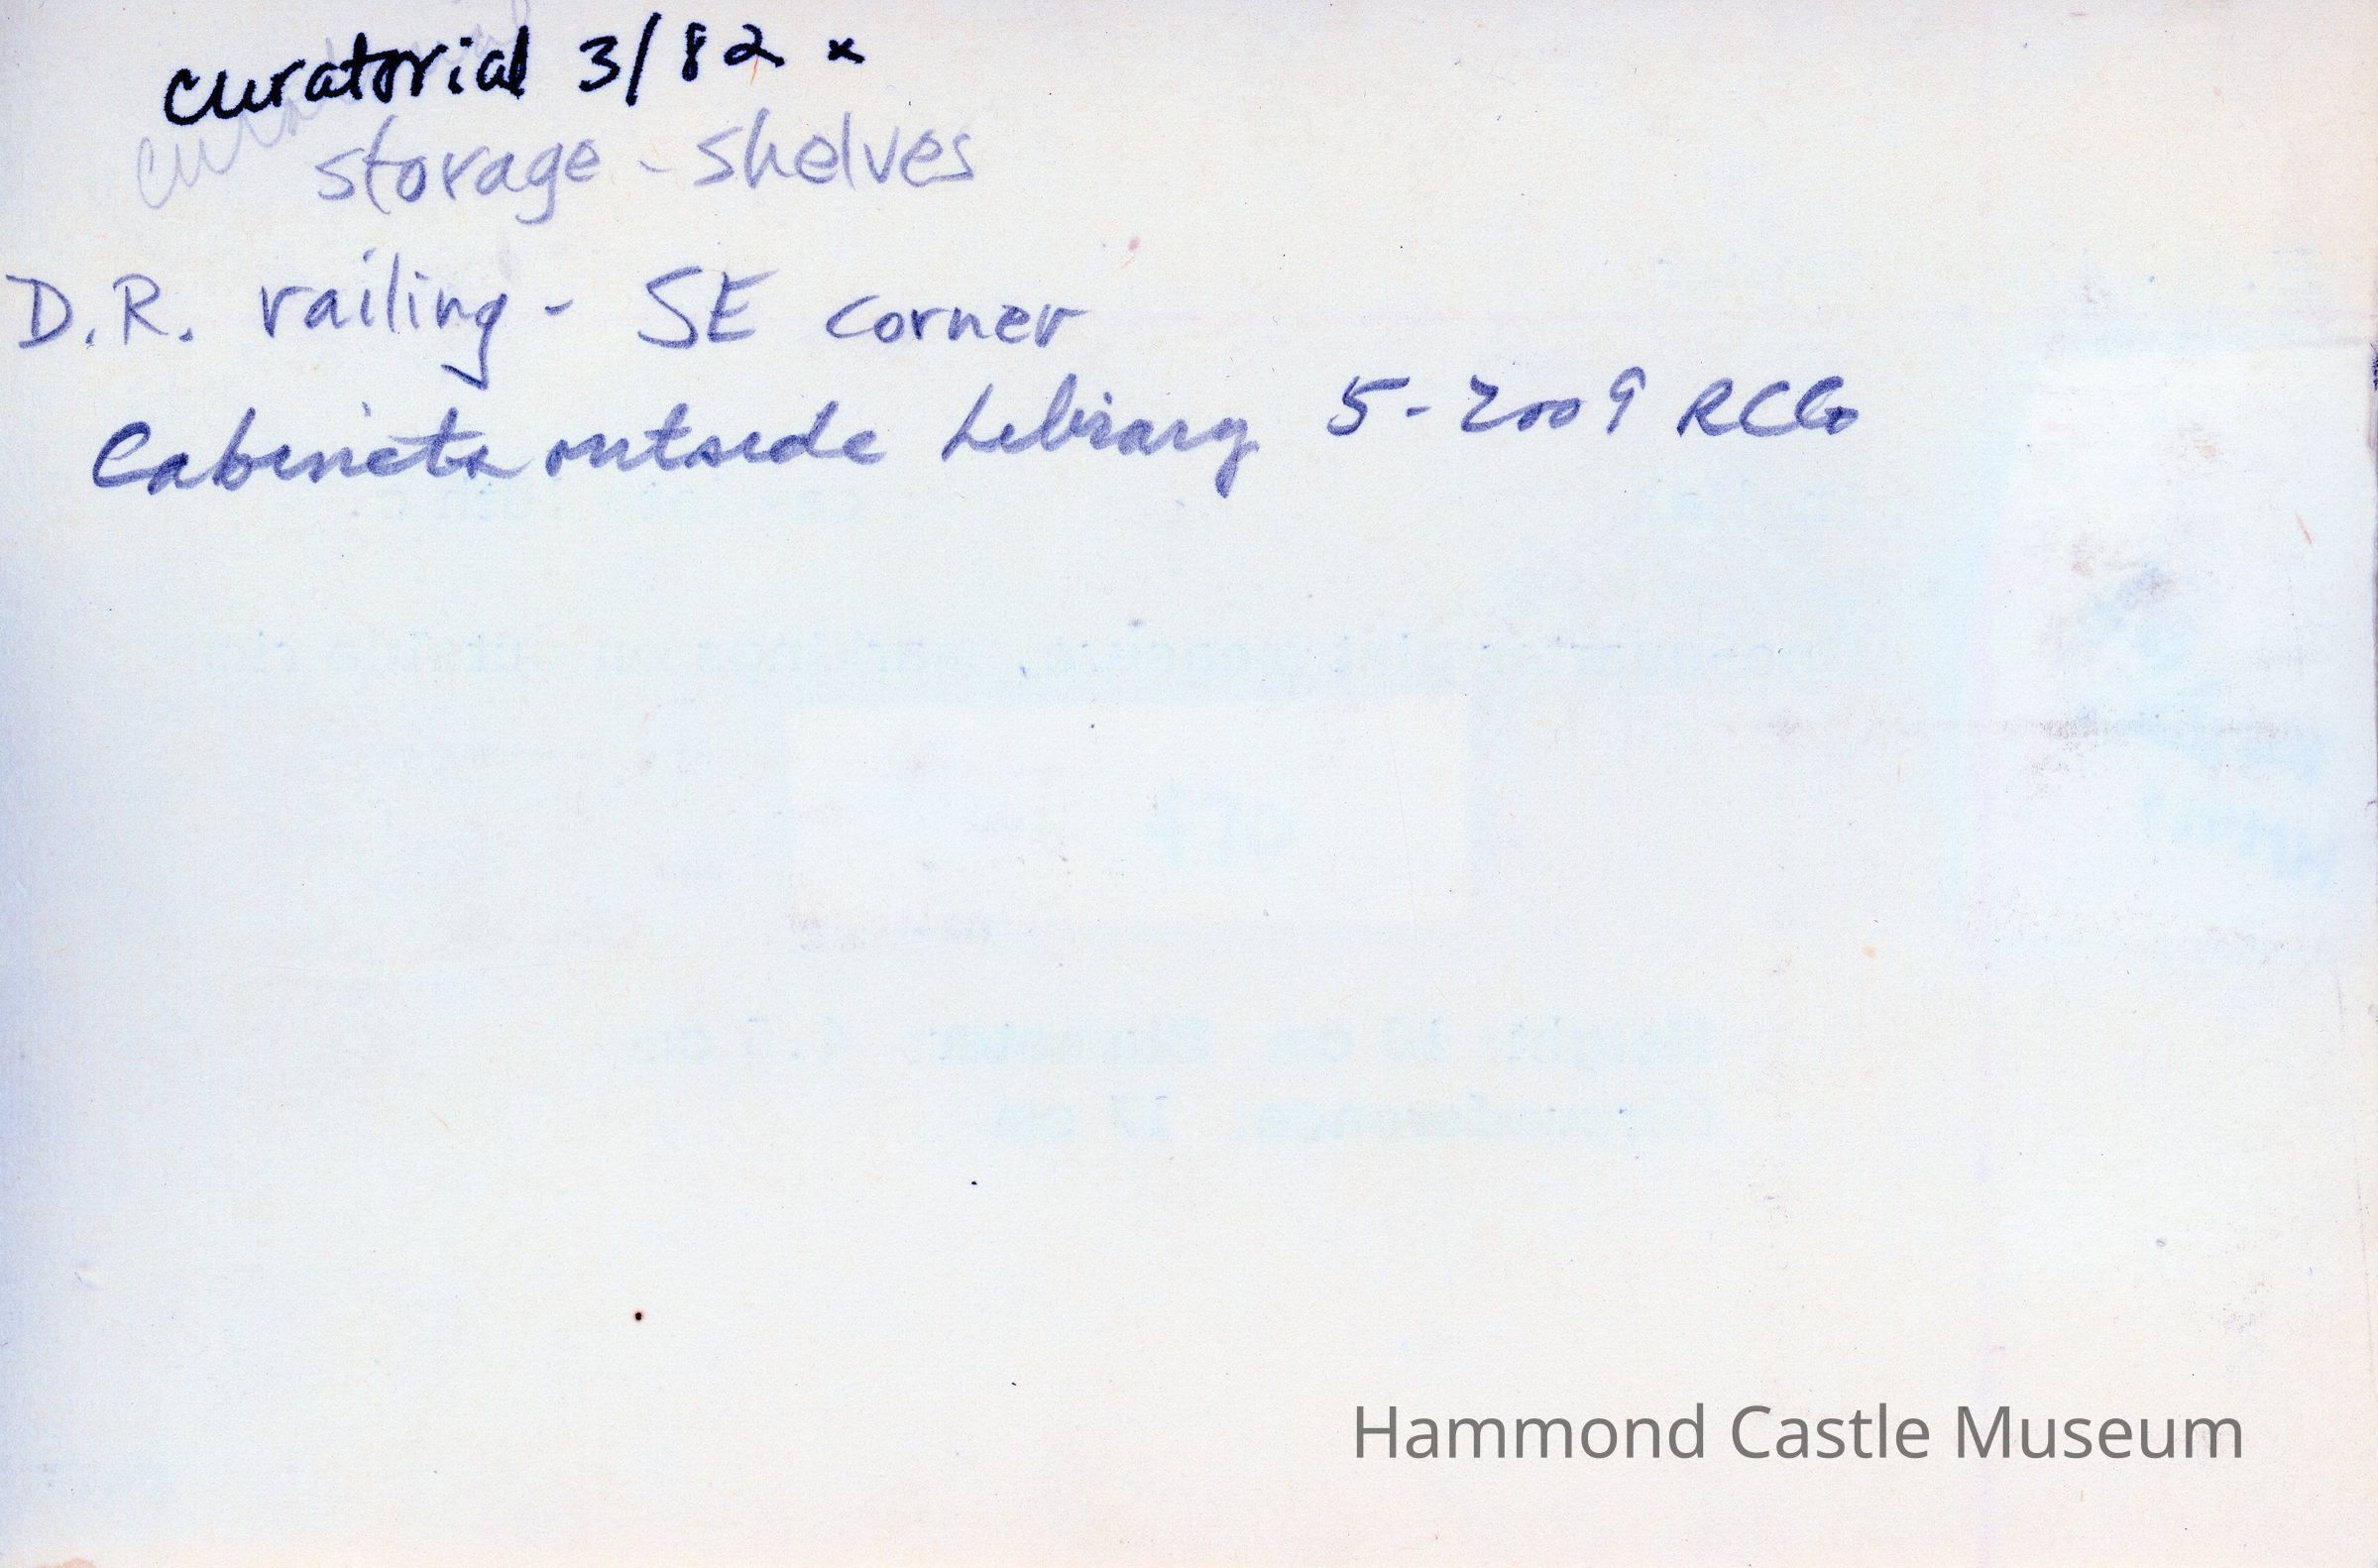 curatorial 3/82 x
storage - shelves
D.R. railing - SE corner
Cabinets outside Library 5-2009 RCG
Hammond Castle Museum